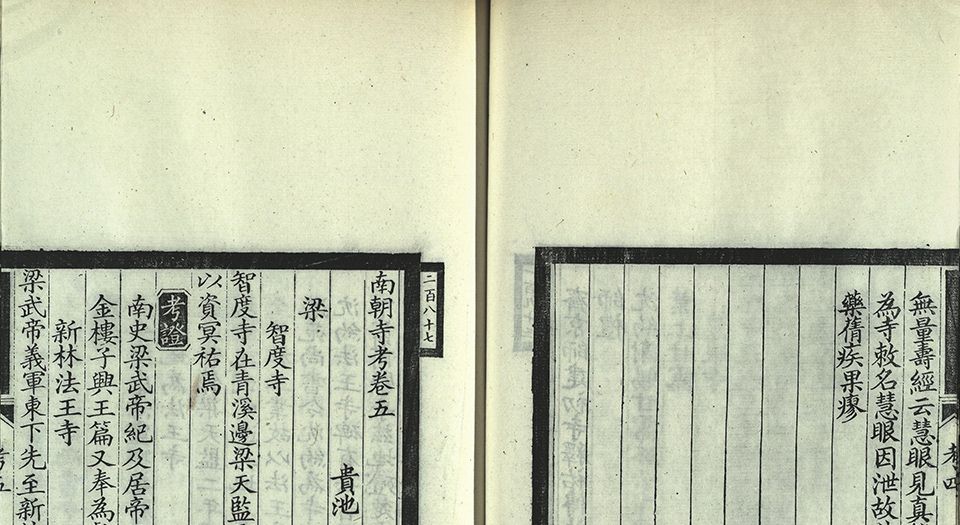 無量壽經云慧眼見真
為寺敕名慧眼因泄故
藥倩疾果瘳
考四
二百八十七
南朝寺考卷五
貴池
梁
智度寺
智度寺在青溪邊梁天監
以資冥祐焉
考證
南史梁武帝紀及居帝
金樓子興王篇又奉為
新林法王寺
梁武帝義軍東下先至新
考五